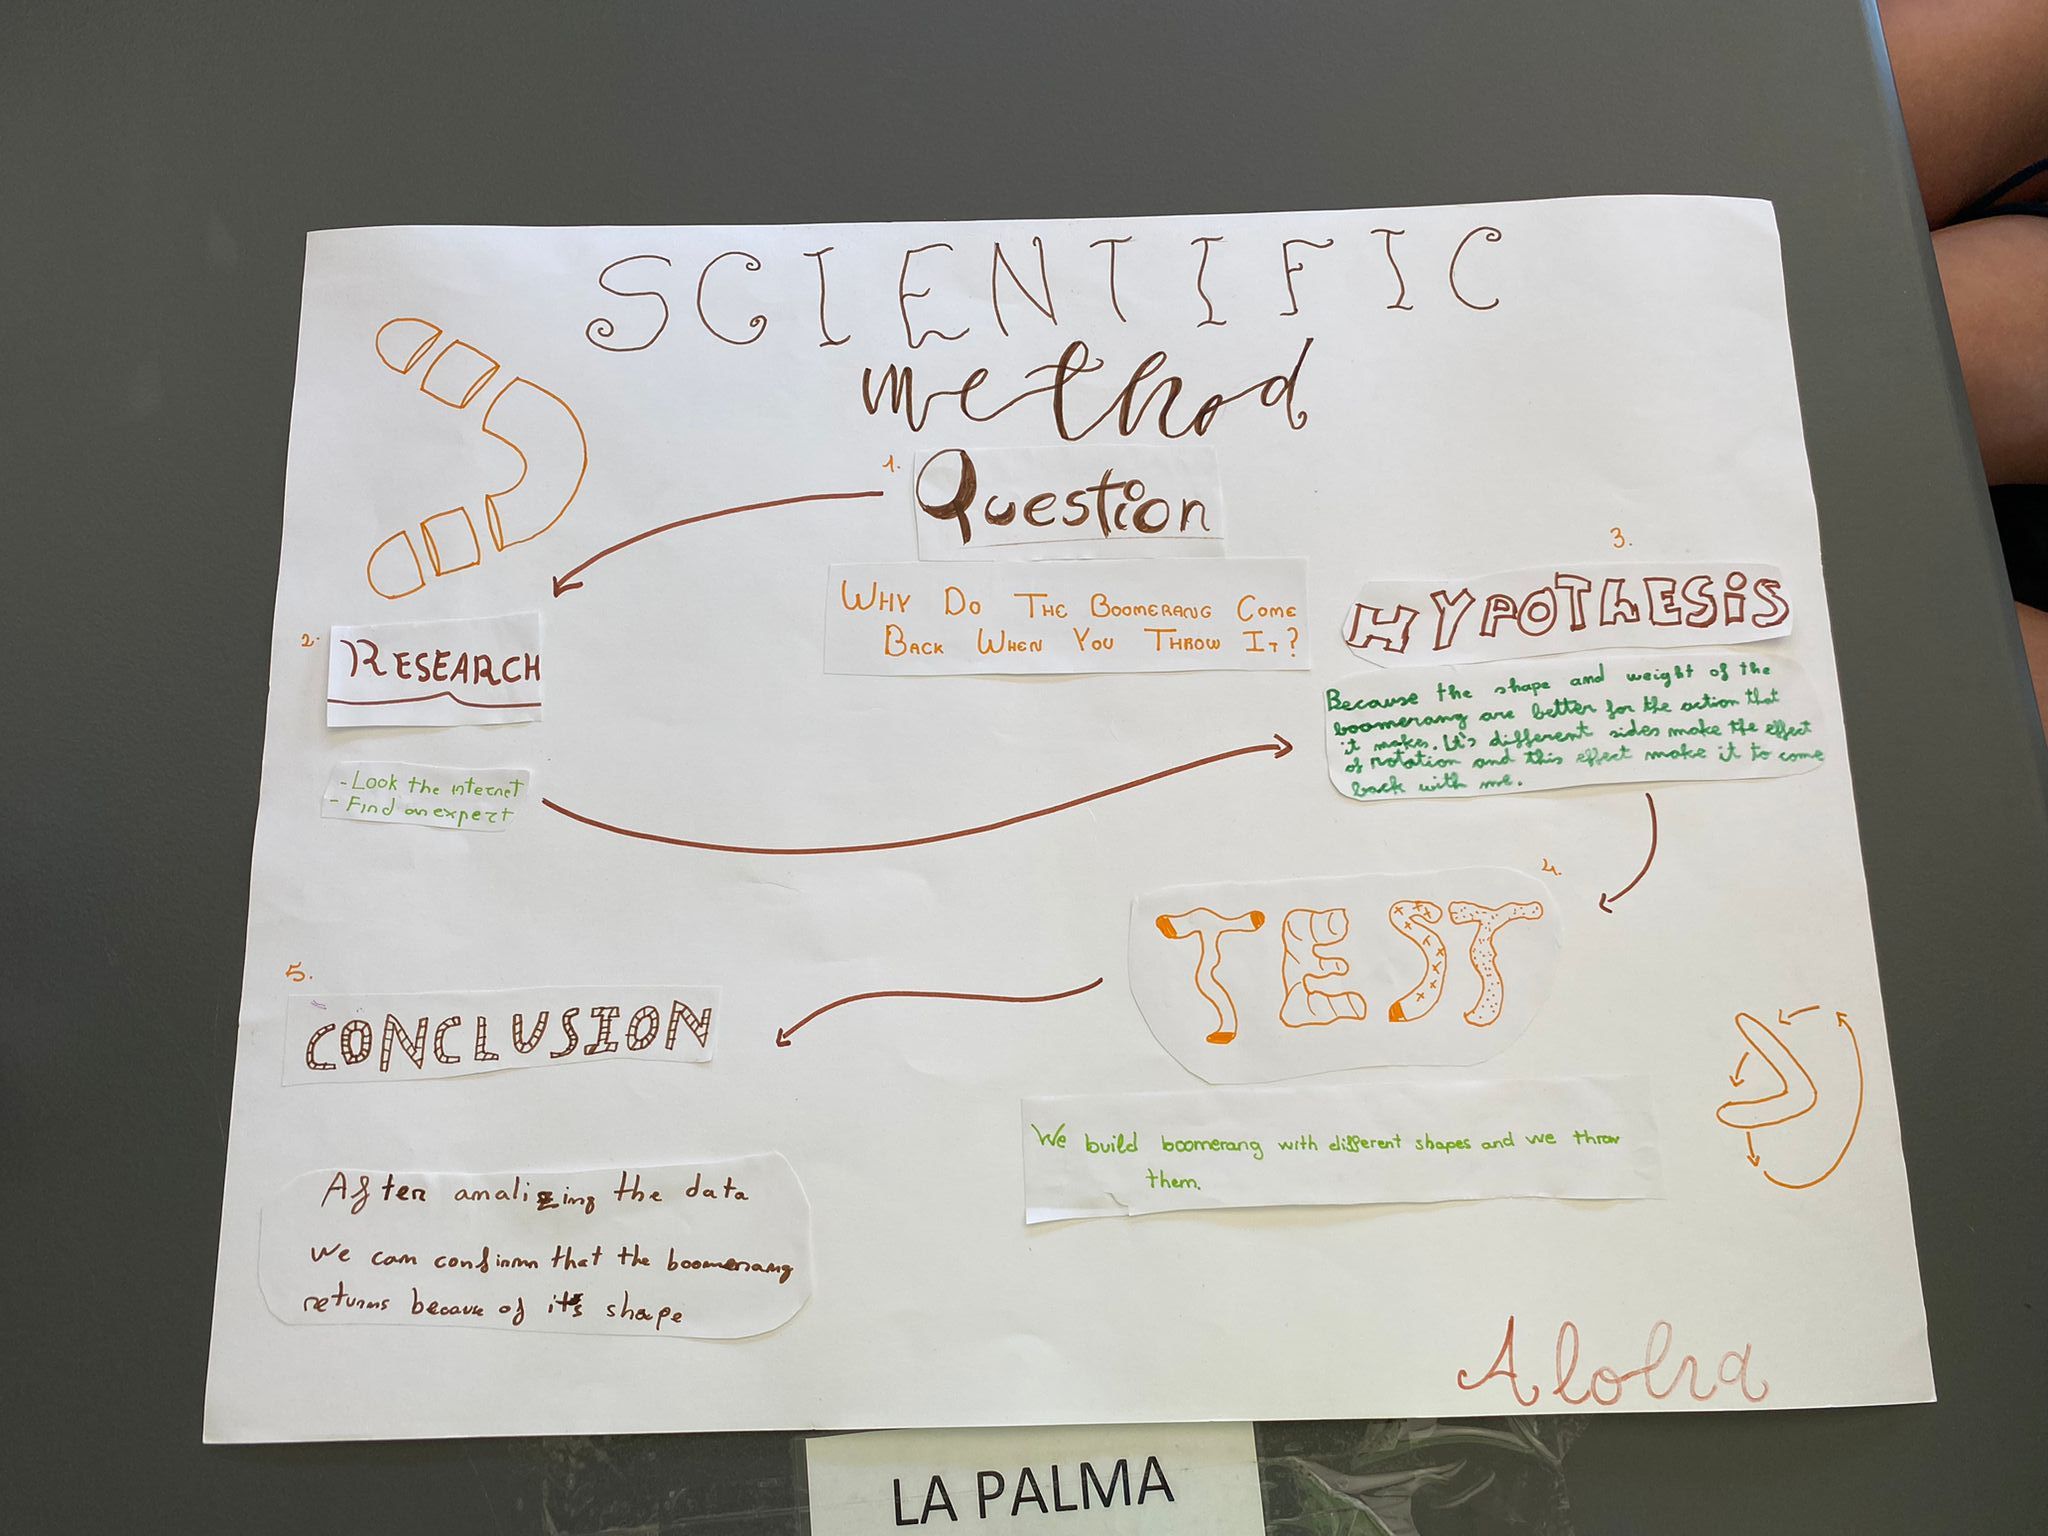 SCIENTIFIC
method
1.
Question
WHY DO THE BOOMERANG COME
BACK WHEN YOU THROW IT?
2.
RESEARCH
- Look the internet
- Find an expert
3.
HYPOTHESIS
Because the shape and weight of the
boomerang are better for the action that
it makes. It's different sides make the effect
of rotation and this effect make it to come
back with me.
4.
TEST
We build boomerang with different shapes and we throw
them.
5.
CONCLUSION
After analizing the data
we can confirm that the boomerang
returns because of it's shape
Aloha
LA PALMA